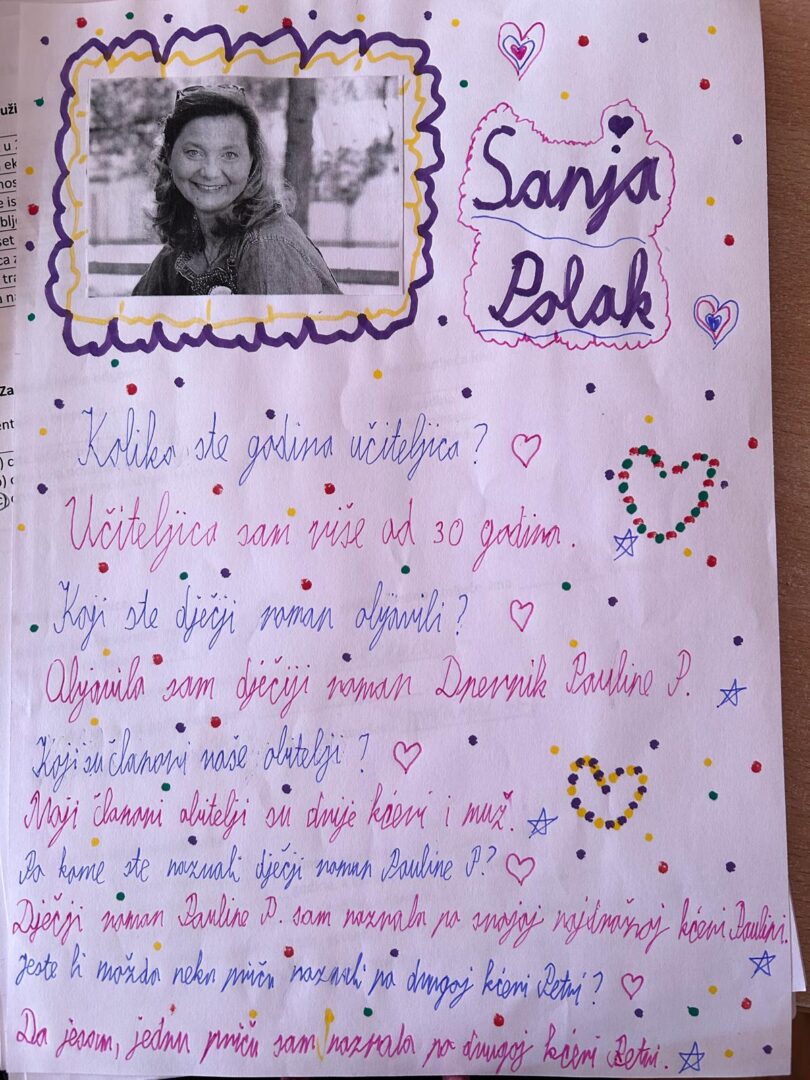 Sanja
Polak
Koliko ste godina učiteljica?
Učiteljica sam više od 30 godina.
Koji ste dječji roman objavili?
Objavila sam dječiji roman Dnevnik Pauline P.
Koji su članovi naše obitelji?
Moji članovi obitelji su dvije kćeri i muž.
Po kome ste nazvali dječji roman Pauline P.?
Dječji roman Pauline P. sam nazvala po svojoj kćeri Paulini.
Jeste li možda neku priču nazvali po drugoj kćeri Petri?
Da jesam, jednu priču sam nazvala po drugoj kćeri Petri.